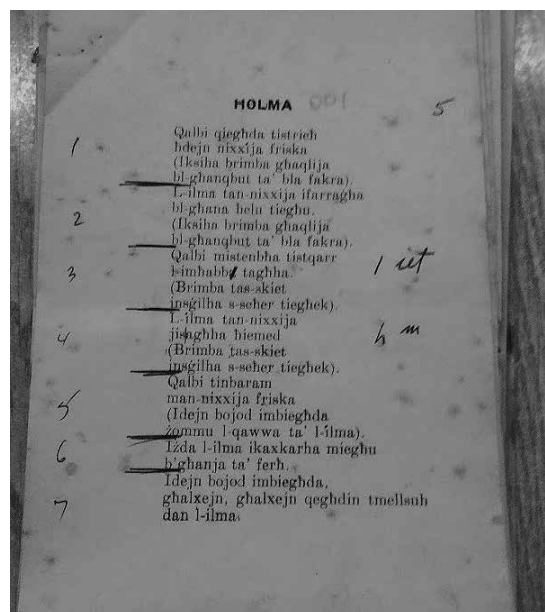 HOLMA 100 5
1 Qalbi qiegħda tistrieħ
ħdejn nixxija friska
(Iksiha brimba għaqlija
bl-għanqbut ta' bla fakra).
L-ilma tan-nixxija ifarragħa
2 bl-għana ħelu tiegħu.
(Iksiha brimba għaqlija
bl-għanqbut ta' bla fakra).
3 Qalbi mistenbħa tistqarr
l-imħabba tagħha.
(Brimba tas-skiet
insġilha s-seħer tiegħek).
L-ilma tan-nixxija
4 jisħagħha hiemed
(Brimba tas-skiet
insġilha s-seħer tiegħek).
Qalbi tinbaram
man-nixxija friska
5 (Idejn bojod imbiegħda
żommu l-qawwa ta' l-ilma).
6 Iżda l-ilma ikaxkarha miegħu
b'għanja ta' ferħ.
Idejn bojod imbiegħda,
7 għalxejn, għalxejn qegħdin tmellsuh
dan l-ilma.